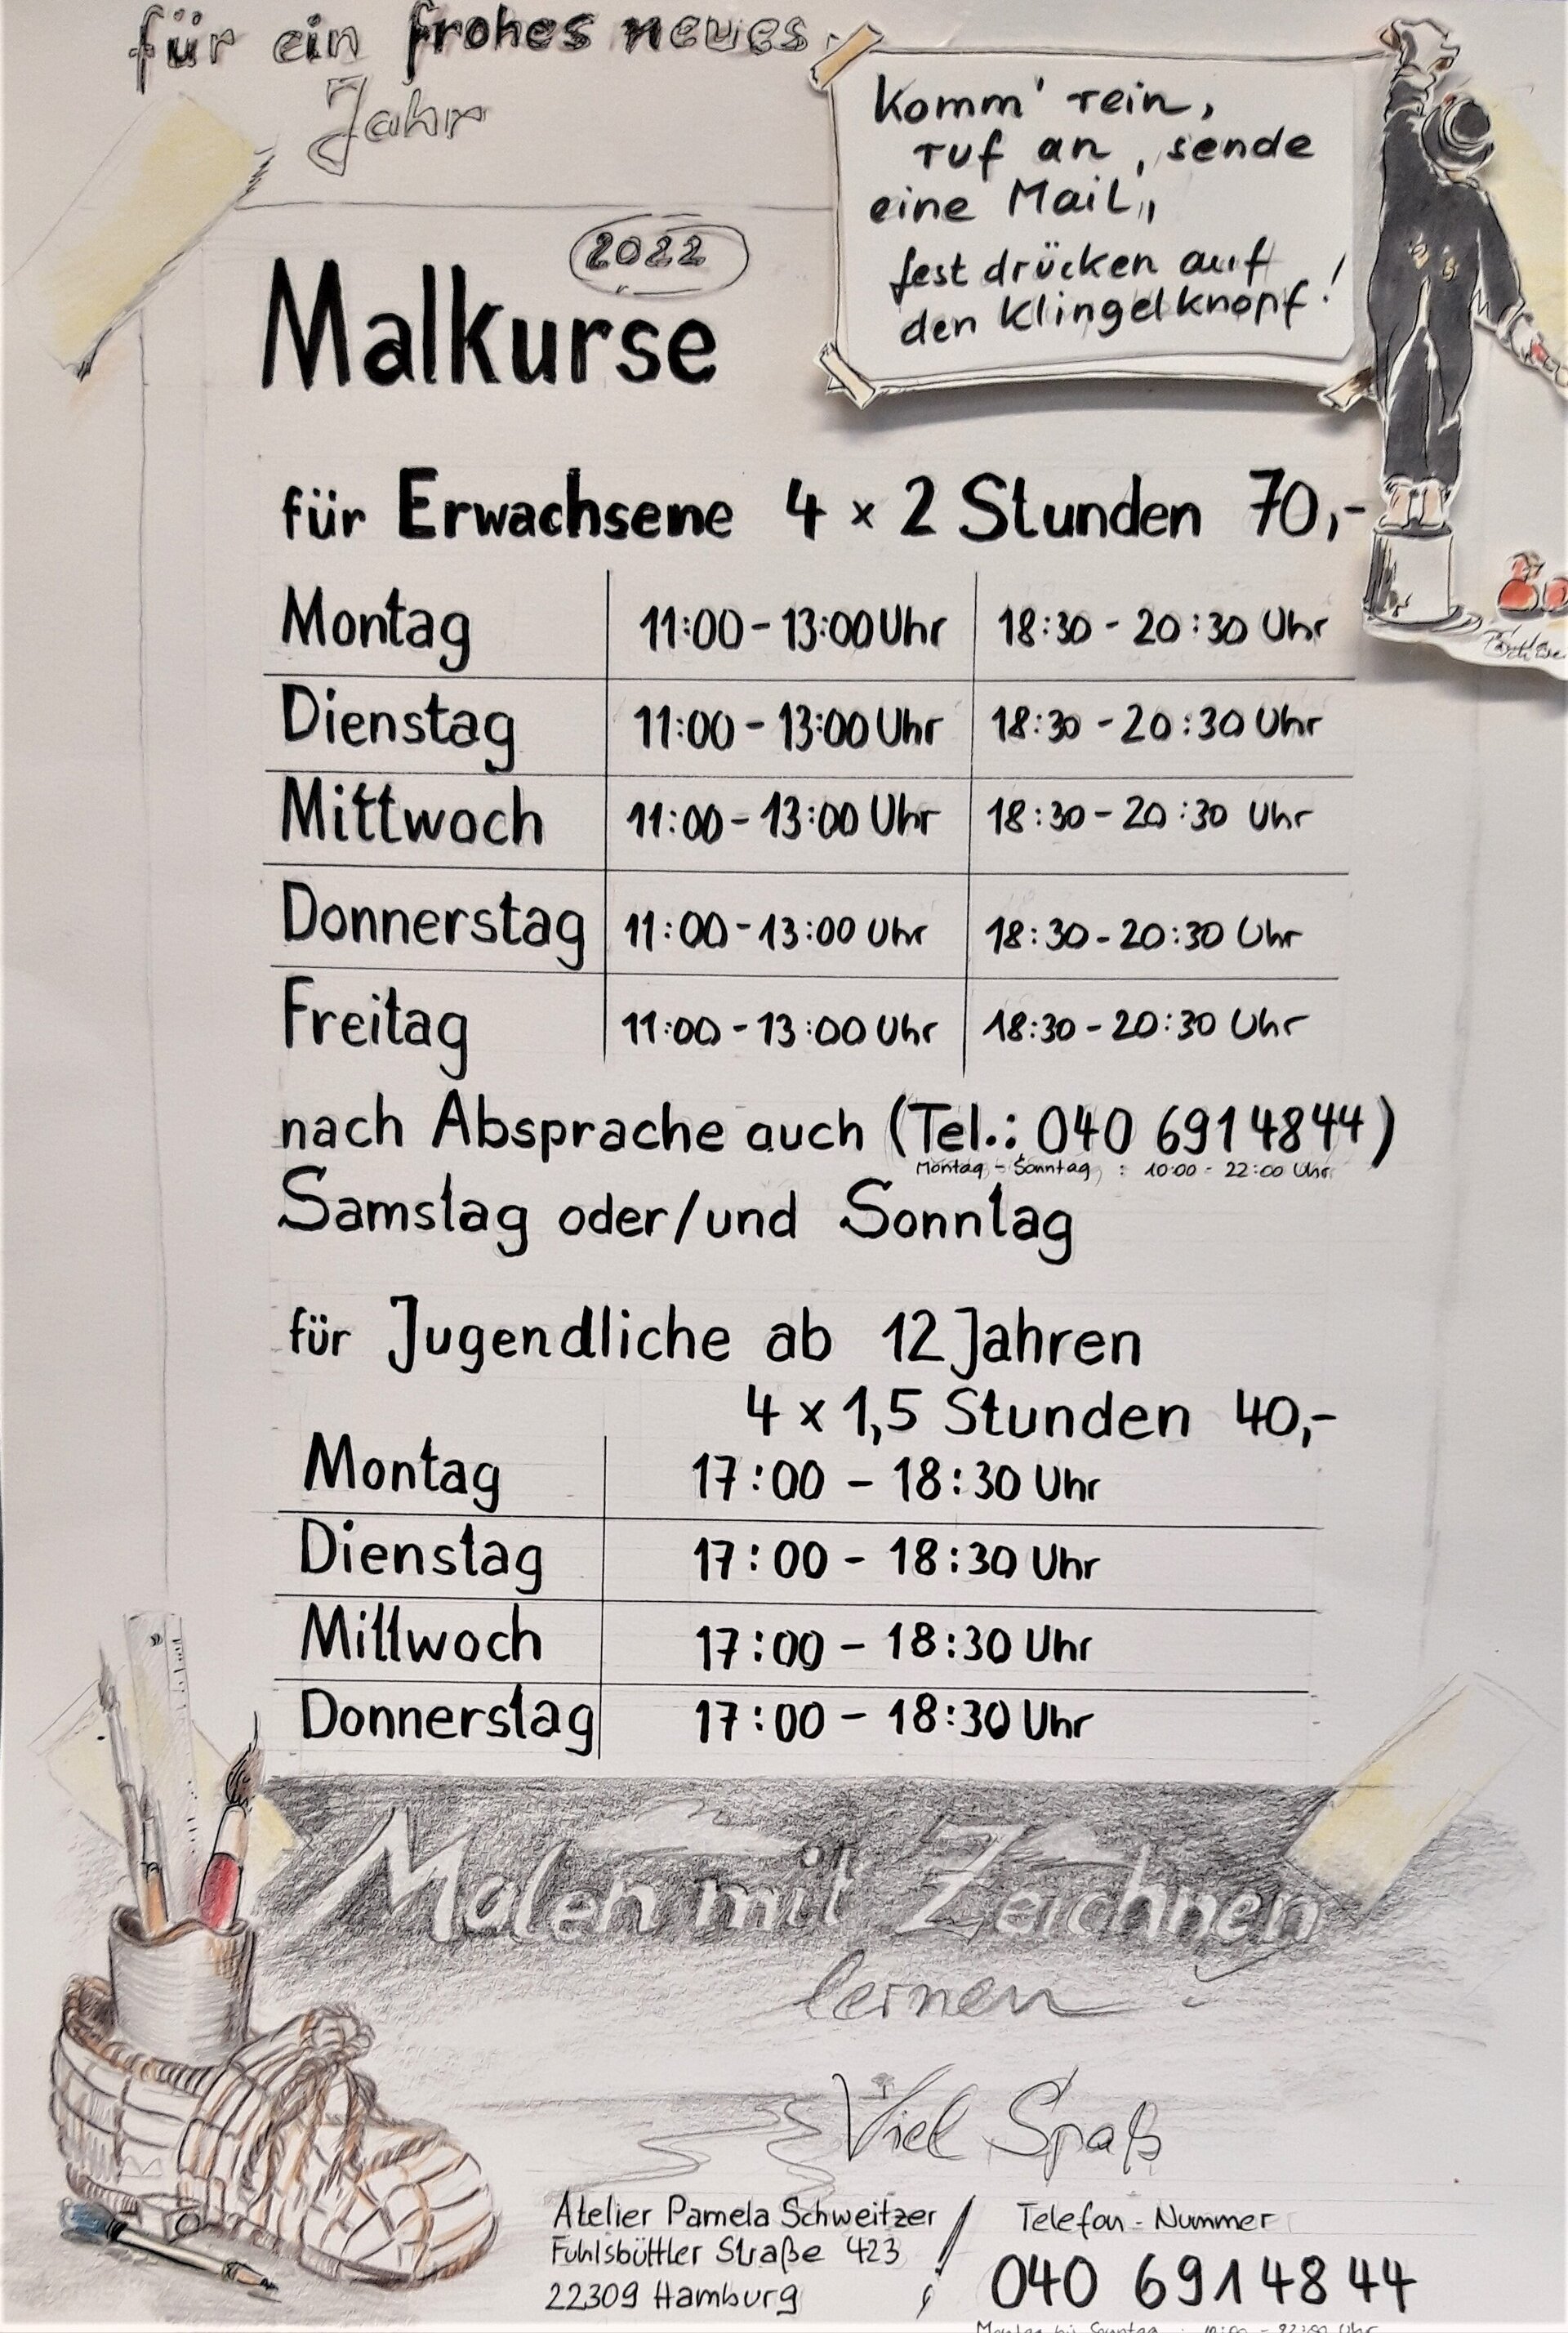 für ein frohes neues
Jahr
Komm' rein,
ruf an, sende
eine Mail,,
fest drücken auf
den Klingelknopf!
2022
Malkurse
für Erwachsene 4 x 2 Stunden 70,-
Montag 11:00 - 13:00 Uhr 18:30 - 20:30 Uhr
Dienstag 11:00 - 13:00 Uhr 18:30 - 20:30 Uhr
Mittwoch 11:00 - 13:00 Uhr 18:30 - 20:30 Uhr
Donnerstag 11:00 - 13:00 Uhr 18:30 - 20:30 Uhr
Freitag 11:00 - 13:00 Uhr 18:30 - 20:30 Uhr
nach Absprache auch (Tel.: 040 6914844)
Montag - Sonntag : 10:00 - 22:00 Uhr
Samstag oder/und Sonntag
für Jugendliche ab 12 Jahren
4 x 1,5 Stunden 40,-
Montag 17:00 - 18:30 Uhr
Dienstag 17:00 - 18:30 Uhr
Mittwoch 17:00 - 18:30 Uhr
Donnerstag 17:00 - 18:30 Uhr
Malen mit Zeichnen
lernen
Viel Spaß
Atelier Pamela Schweitzer
Fuhlsbüttler Straße 423
22309 Hamburg
Telefon - Nummer
040 6914844
Montag bis Sonntag : 10:00 - 22:00 Uhr